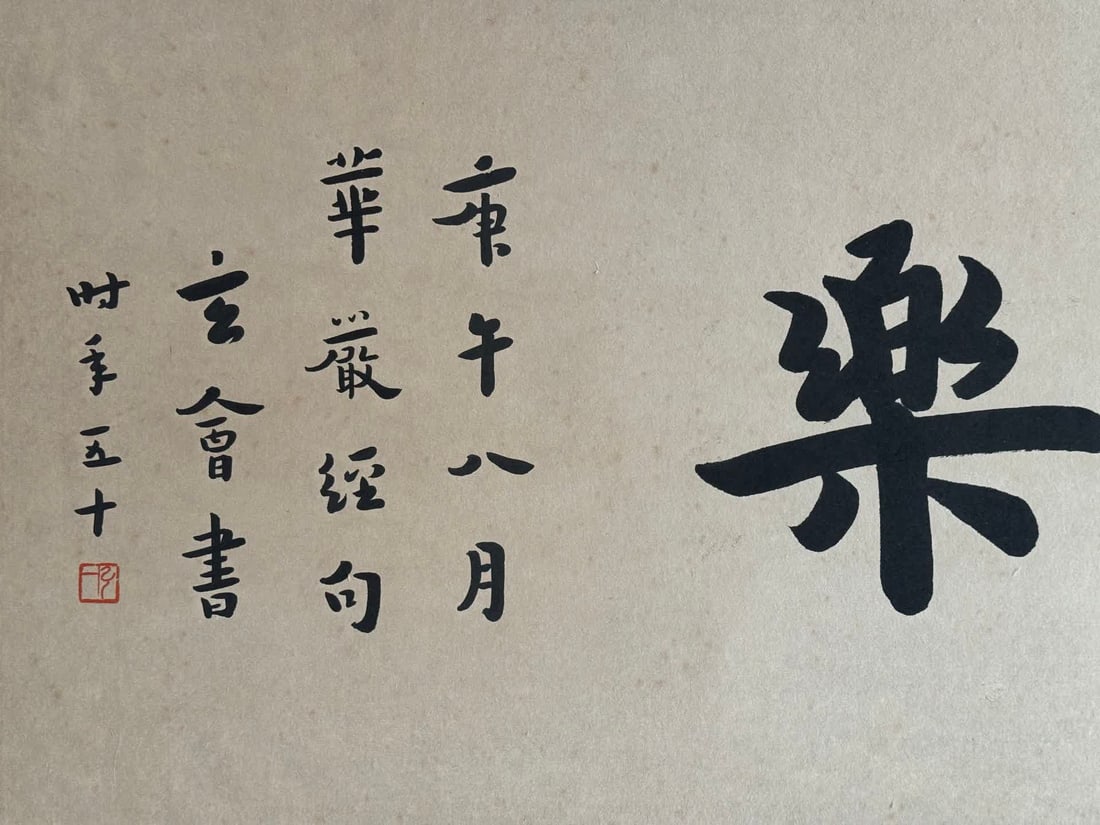 樂
庚午八月
華嚴經句
玄會書
时年五十